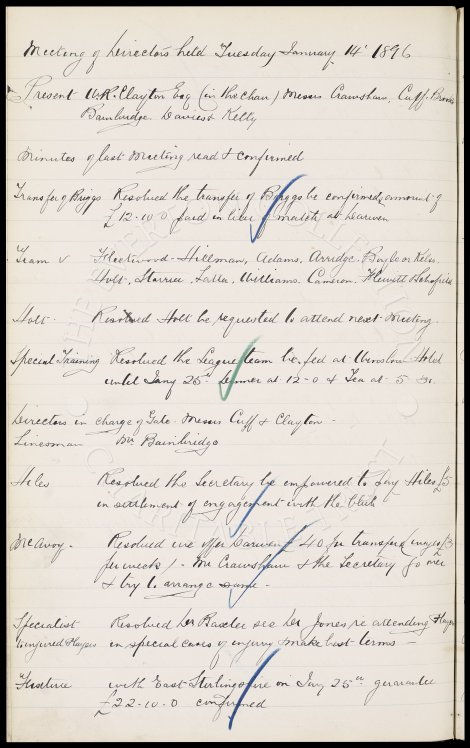 Meeting of Directors held Tuesday January 14th 1896
Present W.R. Clayton Esq (in the chair) Messrs Crawshaw, Cuff, Brooks
Bainbridge Davies & Kelly
Minutes of last Meeting read & confirmed
Transfer of Briggs Resolved the transfer of Briggs be confirmed, amount of
£12-10-0 paid in lieu of match at Darwen
Team v Fleetwood - Hillman, Adams, Arridge, Boyle or Kelso,
Holt, Storrier, Latta, Williams, Cameron, Hewitt & Schofield
Holt - Resolved Holt be requested to attend next Meeting.
Special Training Resolved the League team be fed at Winslow Hotel
until Jany 25th Dinner at 12-0 & Tea at 5
Directors in charge of Gate - Messrs Cuff & Clayton -
Linesman Mr Bainbridge
Hiles Resolved the Secretary be empowered to pay Hiles £5
in settlement of engagement with the Club
McAvoy - Resolved we offer Darwen £40 for transfer & wages £3
per week /- Mr Crawshaw & the Secretary go over
& try to arrange same -
Specialist Resolved Dr Baxter see Dr Jones re attending Players
to injured Players in special cases of injury & make best terms -
Fixture with East Stirlingshire on Jany 25th guarantee
£22-10-0 confirmed